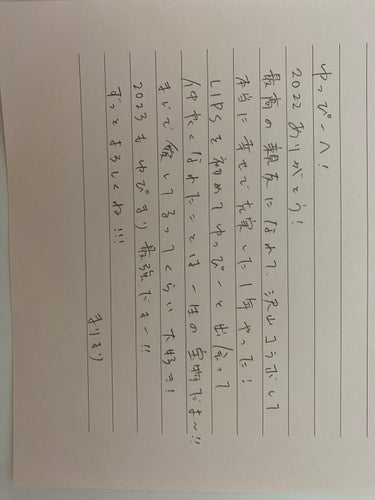 ゆっぴーへ!
2022ありがとう!
最高の親友になれて、沢山コラボして
本当に幸せで充実した1年やった!
LIPSを初めてゆっぴーと出会って
仲良くなれたことは一生の宝物だよ〜!!
まじで愛してるってくらい大好き!
2023もゆぴまり最強だよー!!
ずっとよろしくね!!!
まりまり